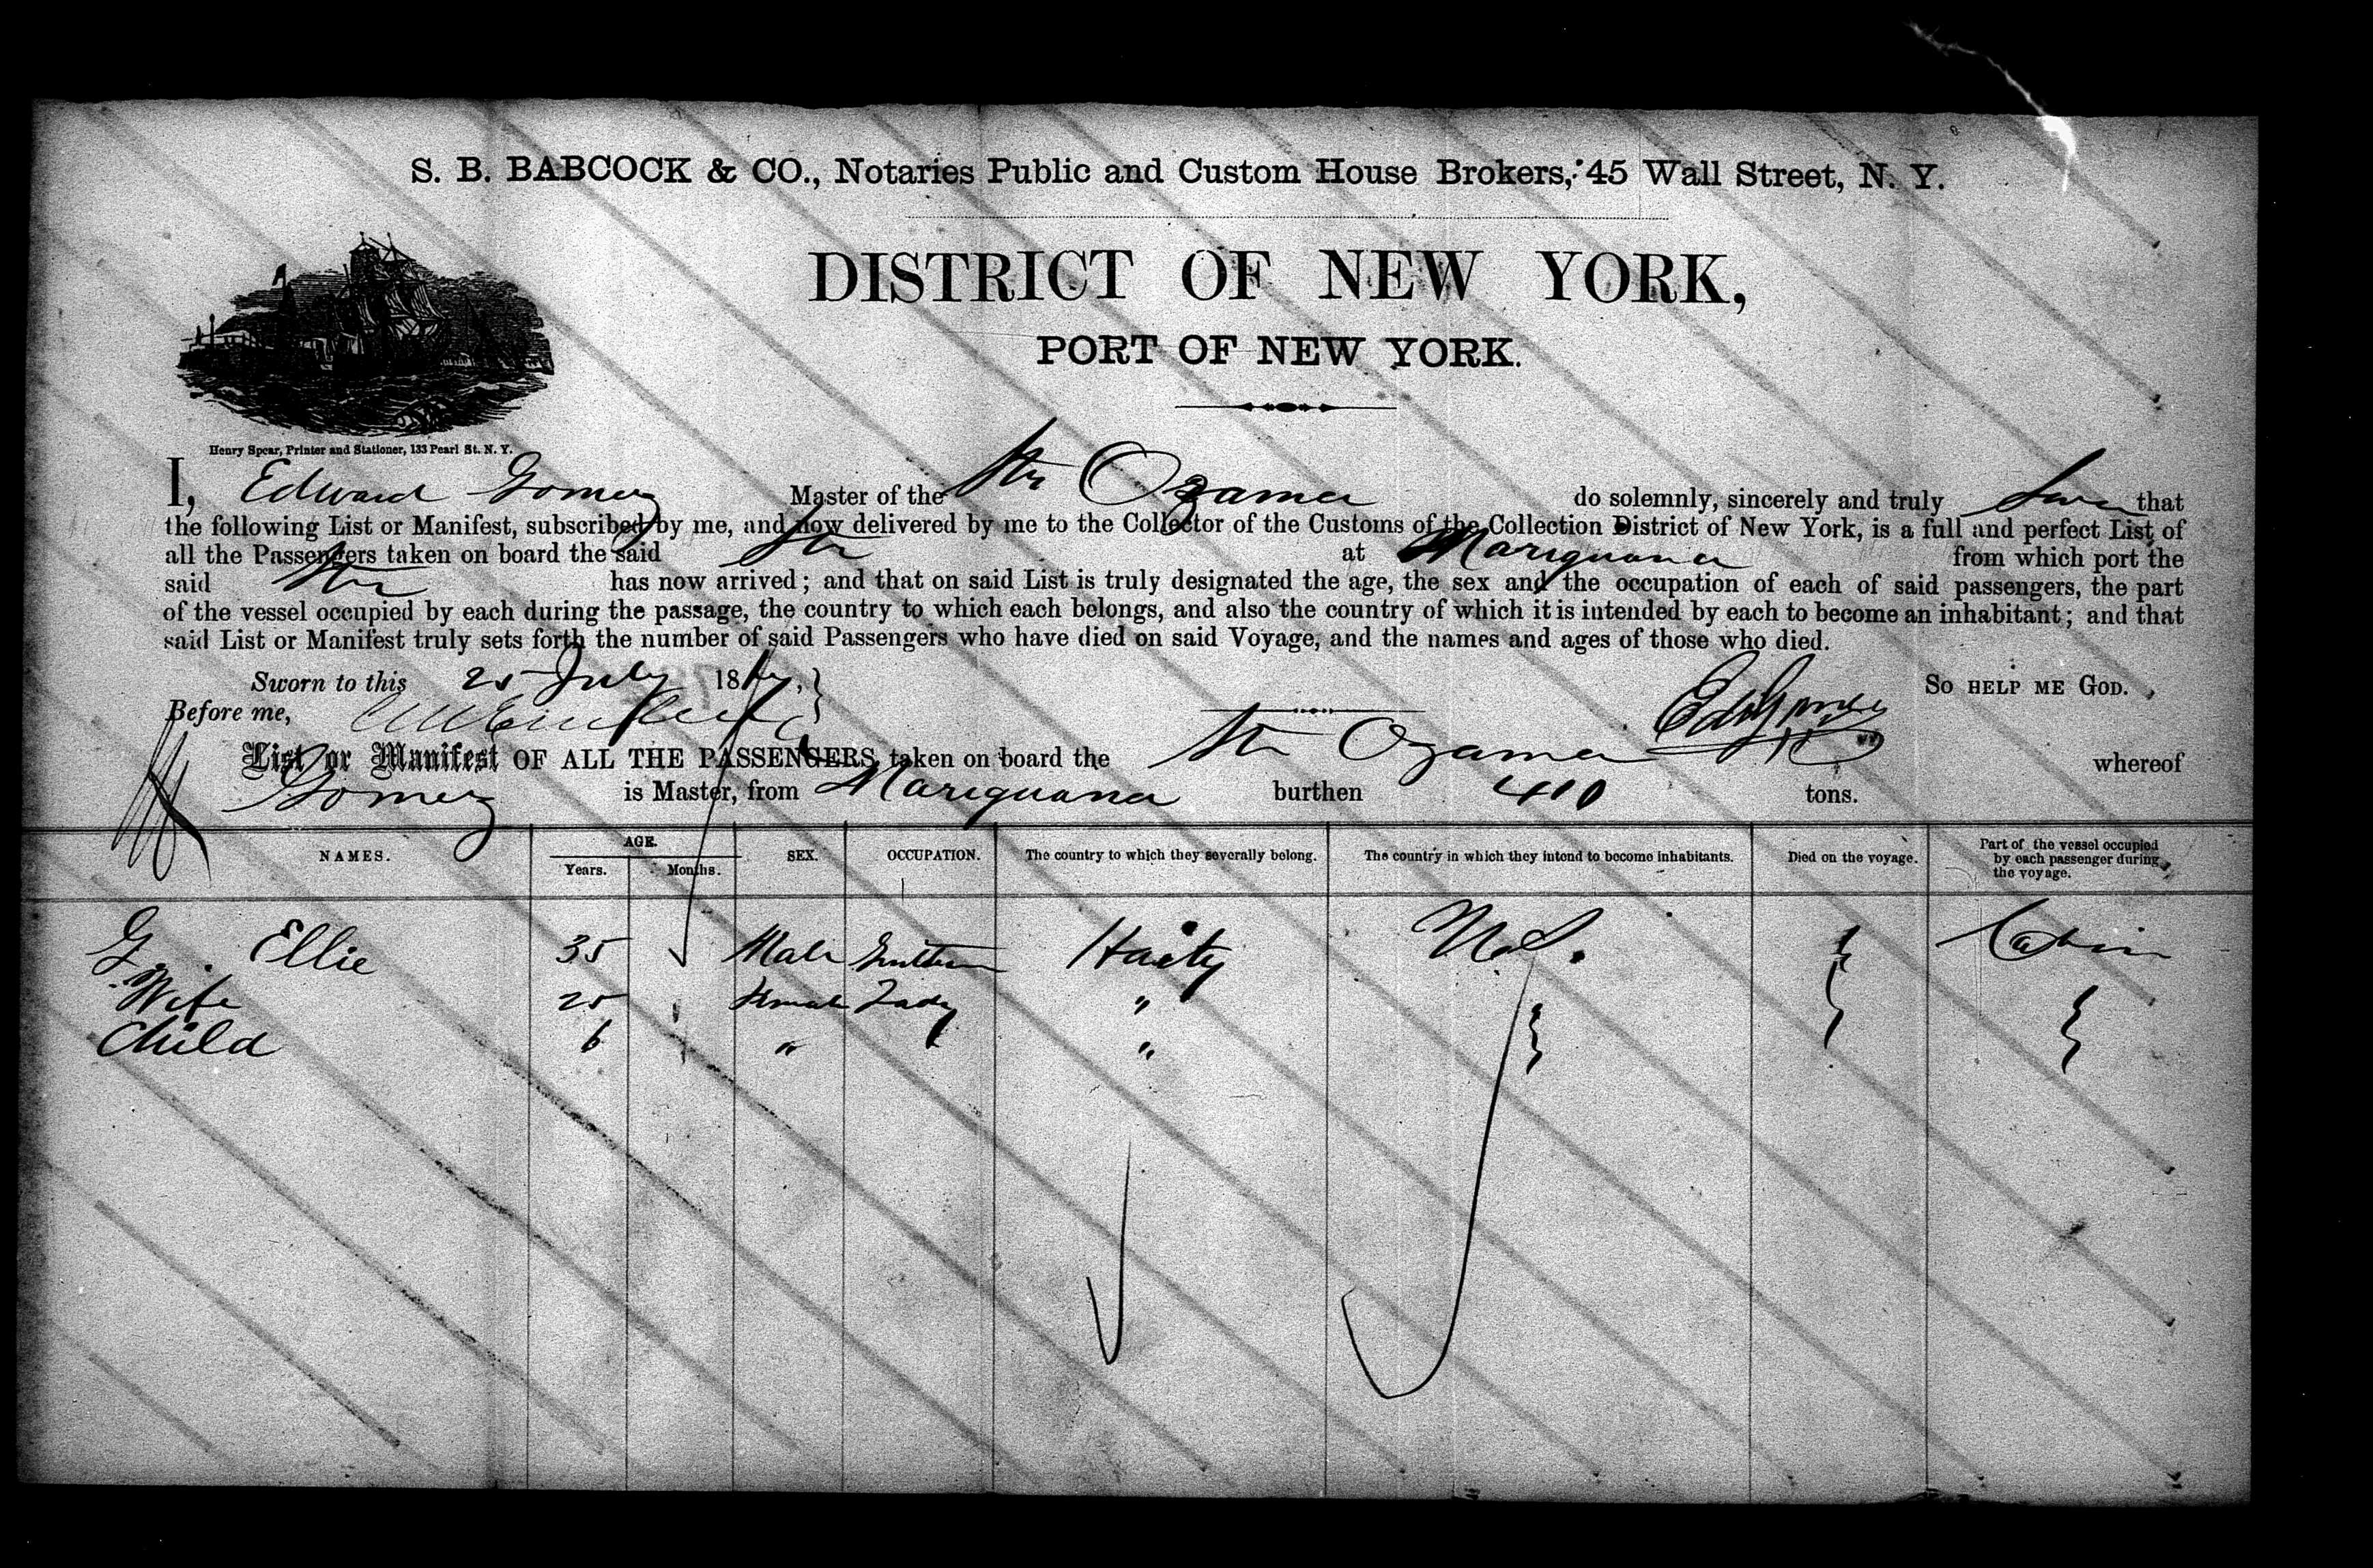 S. B. BABCOCK & CO., Notaries Public and Custom House Brokers, 45 Wall Street, N. Y.
DISTRICT OF NEW YORK,
PORT OF NEW YORK.
Henry Spear, Printer and Stationer, 133 Pearl St. N. Y.
I, Edward Gomez Master of the Str Ozama do solemnly, sincerely and truly that
the following List or Manifest, subscribed by me, and now delivered by me to the Collector of the Customs of the Collection District of New York, is a full and perfect List of
all the Passengers taken on board the said Str at Mariguana from which port the
said Str has now arrived; and that on said List is truly designated the age, the sex and the occupation of each of said passengers, the part
of the vessel occupied by each during the passage, the country to which each belongs, and also the country of which it is intended by each to become an inhabitant; and that
said List or Manifest truly sets forth the number of said Passengers who have died on said Voyage, and the names and ages of those who died.
Sworn to this 25 July 18 So HELP ME GOD.
Before me,
List or Manifest OF ALL THE PASSENGERS taken on board the Str Ozama whereof
Gomez is Master, from Mariguana burthen 410 tons.
NAMES. AGE. Years. Months. SEX. OCCUPATION. The country to which they severally belong. The country in which they intend to become inhabitants. Died on the voyage. Part of the vessel occupied by each passenger during the voyage.
G Ellie 35 Male Haity Cabin
Wife 25 Female Lady "
Child 6 " "